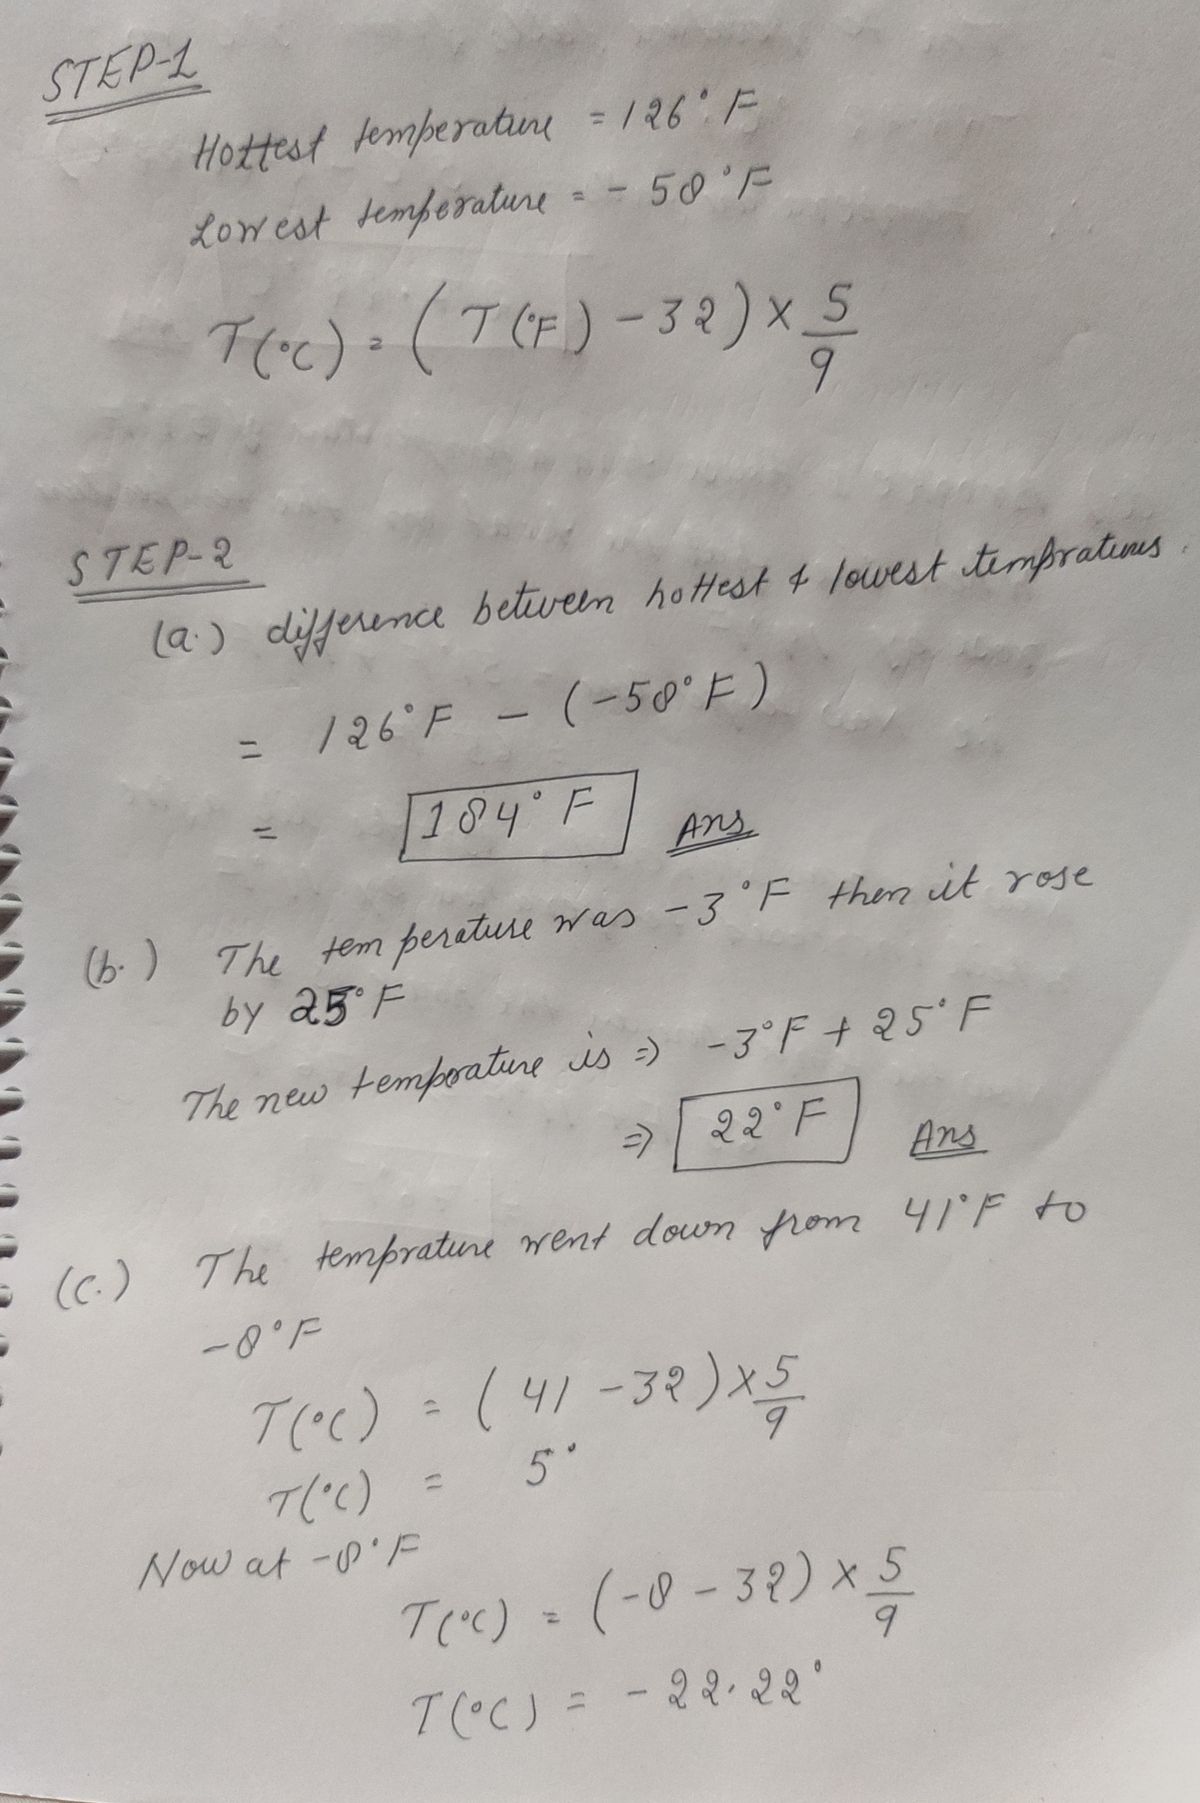 STEP-1
Hottest temperature = 126° F
Lowest temperature = - 58°F
T(°C) = ( T(°F) - 32) × 5/9
STEP-2
(a.) difference between hottest & lowest tempratures.
= 126°F - (-58°F)
= 184° F Ans
(b.) The temperature was -3°F then it rose
by 25°F
The new temperature is ⇒ -3°F + 25°F
⇒ 22°F Ans
(c.) The temprature went down from 41°F to
-8°F
T(°C) = ( 41 - 32) × 5/9
T(°C) = 5°
Now at -8°F
T(°C) = (-8 - 32) × 5/9
T(°C) = - 22.22°